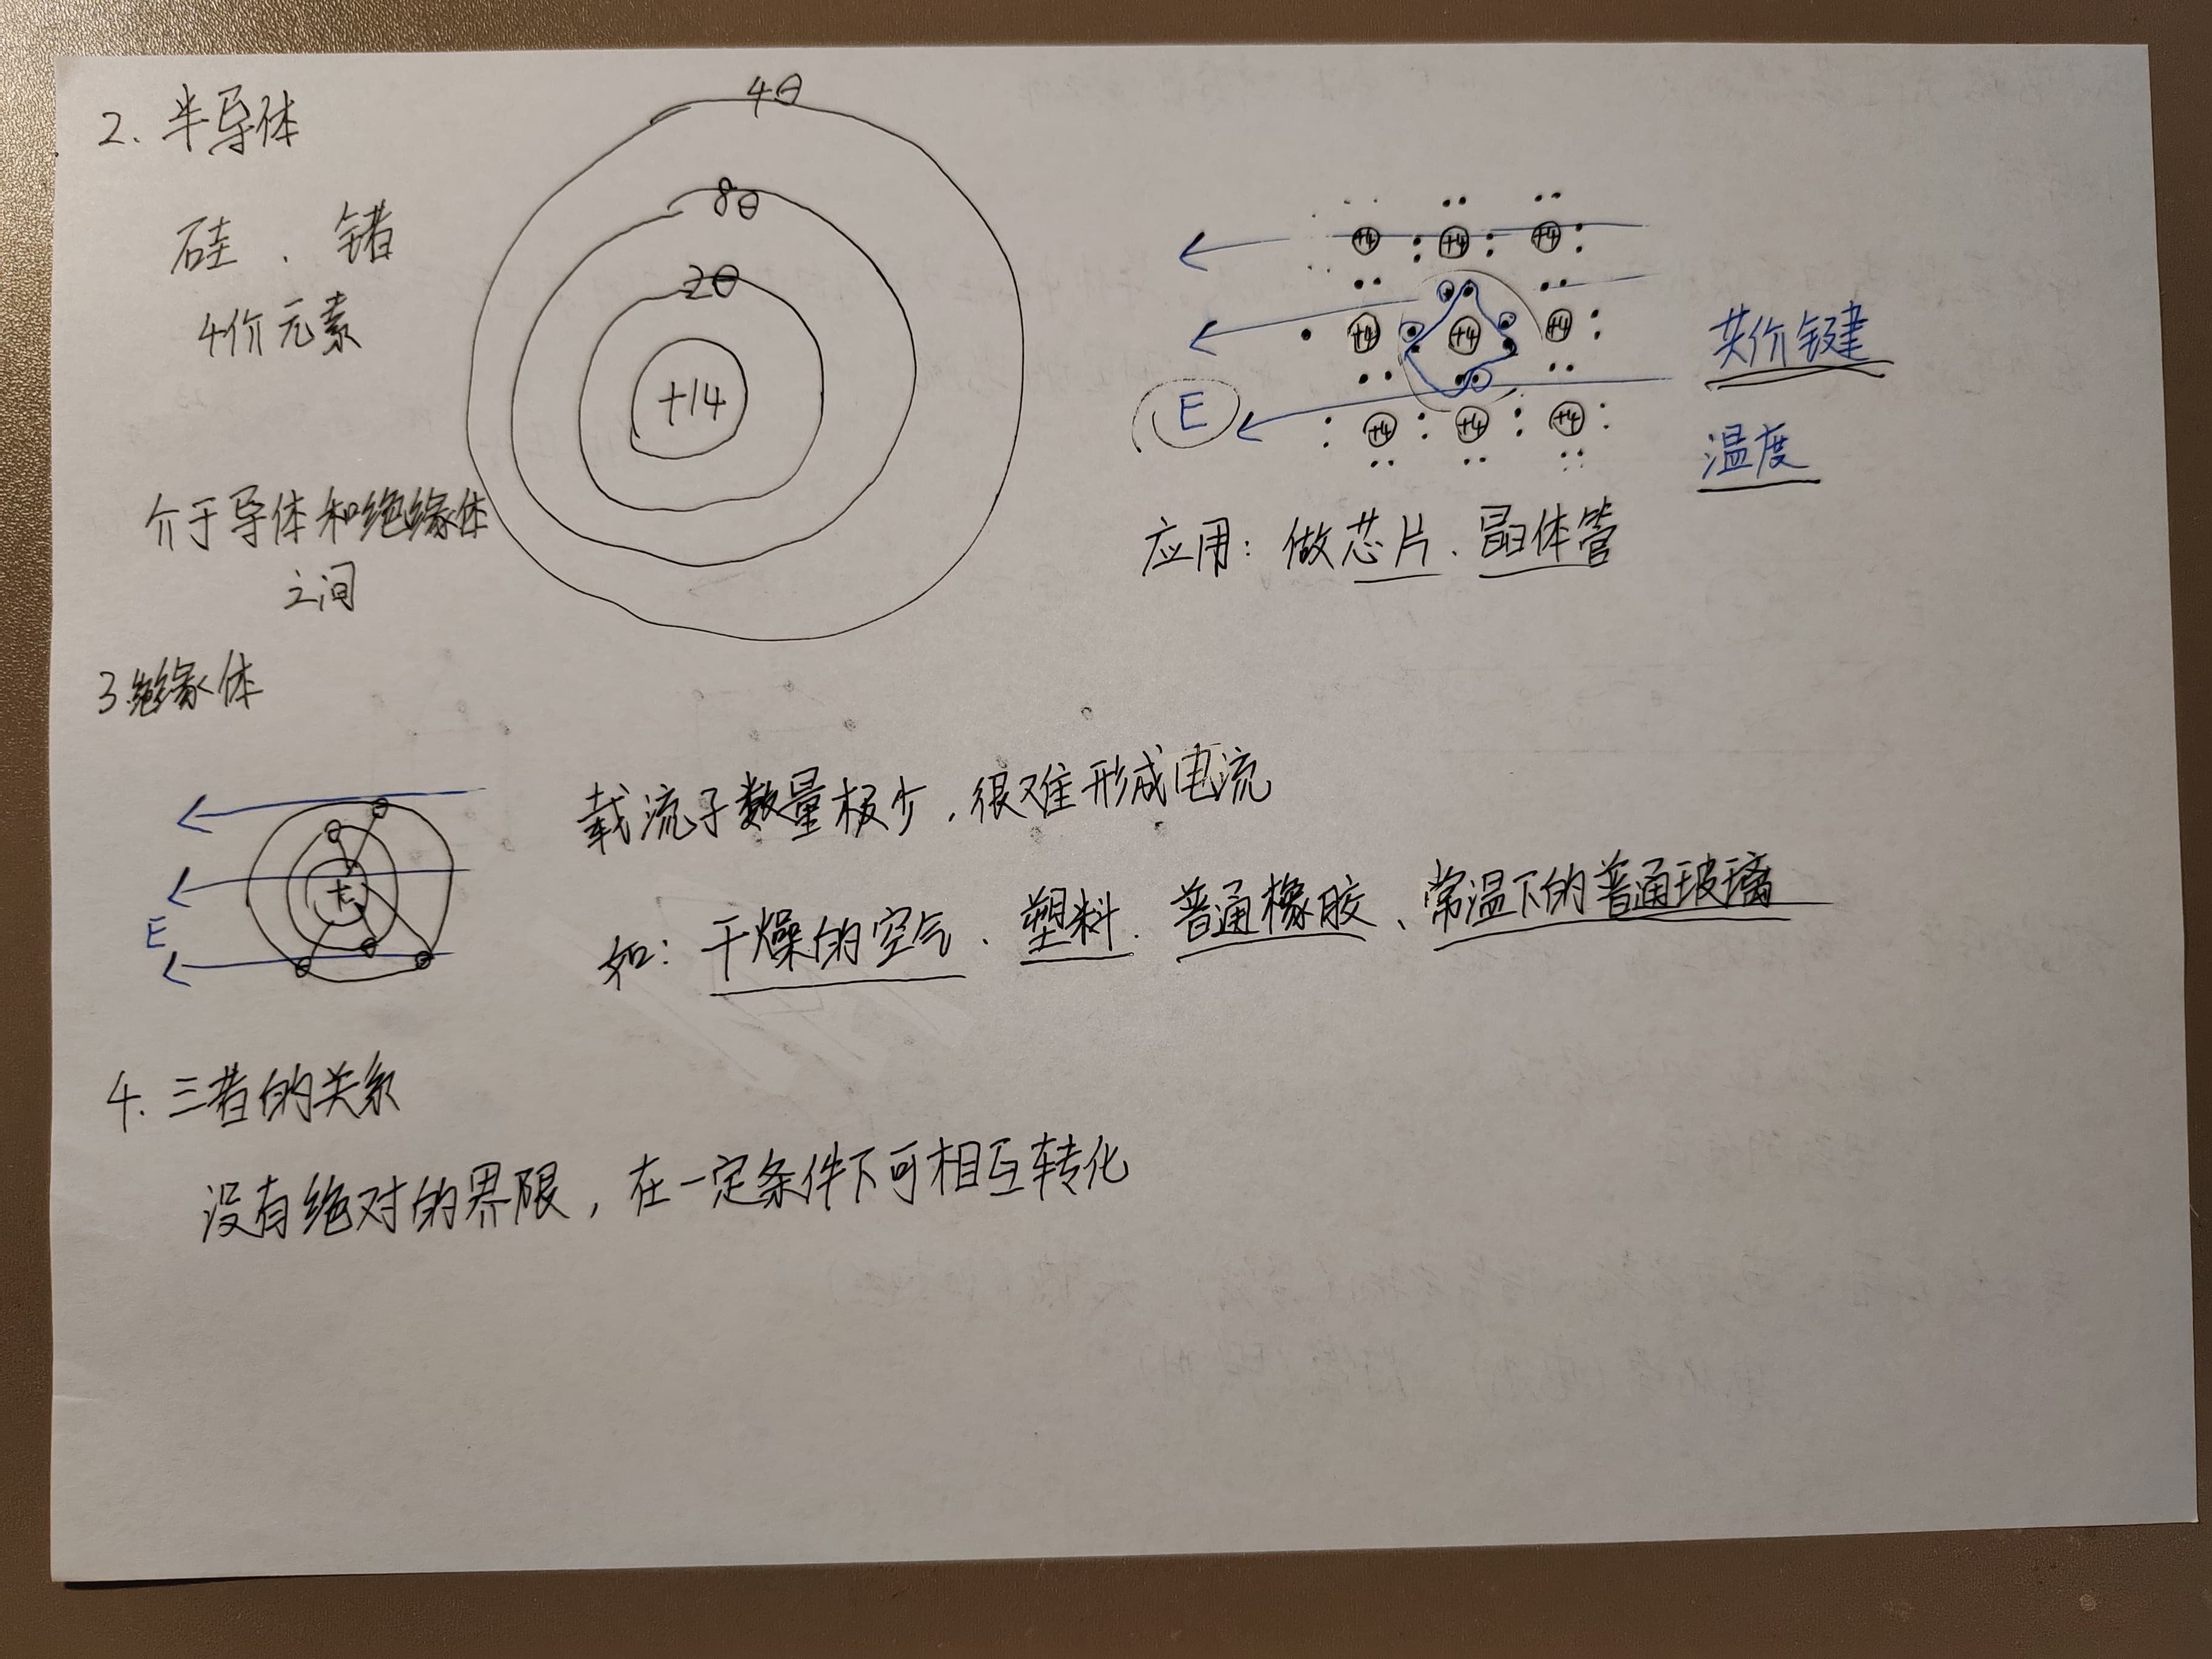 2. 半导体
硅、锗
4价元素
介于导体和绝缘体
之间
4⊖
8⊖
2⊖
+14
+4 +4 +4
+4 +4 +4
+4 +4 +4
E
共价键
温度
应用：做芯片、晶体管
3.绝缘体
+
E
载流子数量极少，很难形成电流
如：干燥的空气、塑料、普通橡胶、常温下的普通玻璃
4. 三者的关系
没有绝对的界限，在一定条件下可相互转化